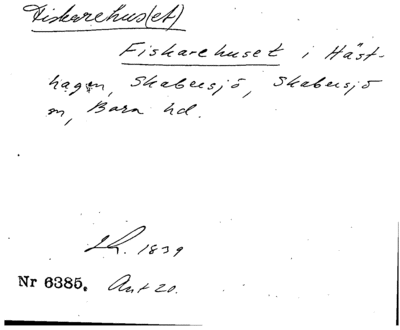 Fiskarehus(et)
Fiskarehuset i Häst-
hagen, Skabersjö, Skabersjö
sn, Bara hd.
Lk. 1839
Nr 6385. Ant 20.